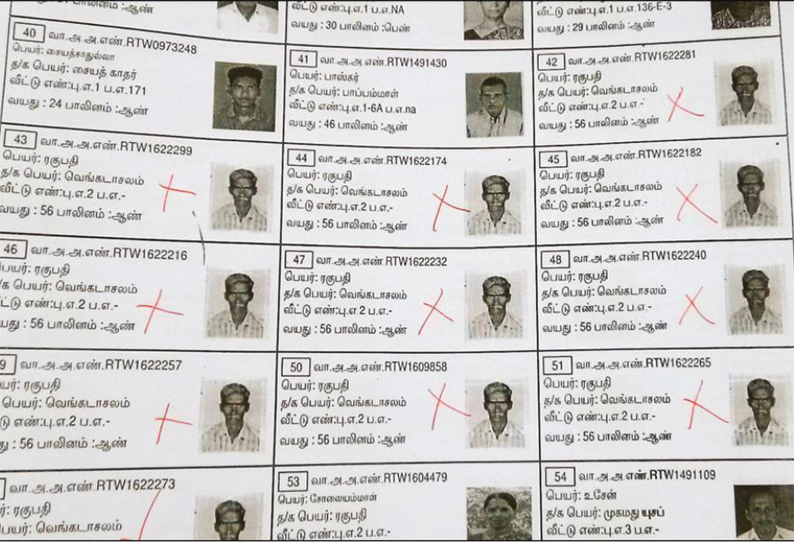 பாலினம் :ஆண்
வீட்டு எண்:பு.எ.1 ப.எ.NA
வயது : 30 பாலினம் :பெண்
வீட்டு எண்:பு.எ.1 ப.எ.136-E-3
வயது : 29 பாலினம் :ஆண்
40 வா.அ.அ.எண்.RTW0973248
பெயர்: சையத்சாதுல்லா
த/க பெயர்: சையத் காதர்
வீட்டு எண்:பு.எ.1 ப.எ.171
வயது : 24 பாலினம் :ஆண்
41 வா.அ.அ.எண்.RTW1491430
பெயர்: பாஸ்கர்
த/க பெயர்: பாப்பம்மாள்
வீட்டு எண்:பு.எ.1-6A ப.எ.na
வயது : 46 பாலினம் :ஆண்
42 வா.அ.அ.எண்.RTW1622281
பெயர்: ரகுபதி
த/க பெயர்: வெங்கடாசலம்
வீட்டு எண்:பு.எ.2 ப.எ.-
வயது : 56 பாலினம் :ஆண்
43 வா.அ.அ.எண்.RTW1622299
பெயர்: ரகுபதி
த/க பெயர்: வெங்கடாசலம்
வீட்டு எண்:பு.எ.2 ப.எ.-
வயது : 56 பாலினம் :ஆண்
44 வா.அ.அ.எண்.RTW1622174
பெயர்: ரகுபதி
த/க பெயர்: வெங்கடாசலம்
வீட்டு எண்:பு.எ.2 ப.எ.-
வயது : 56 பாலினம் :ஆண்
45 வா.அ.அ.எண்.RTW1622182
பெயர்: ரகுபதி
த/க பெயர்: வெங்கடாசலம்
வீட்டு எண்:பு.எ.2 ப.எ.-
வயது : 56 பாலினம் :ஆண்
46 வா.அ.அ.எண்.RTW1622216
பெயர்: ரகுபதி
/க பெயர்: வெங்கடாசலம்
ட்டு எண்:பு.எ.2 ப.எ.-
யது : 56 பாலினம் :ஆண்
47 வா.அ.அ.எண்.RTW1622232
பெயர்: ரகுபதி
த/க பெயர்: வெங்கடாசலம்
வீட்டு எண்:பு.எ.2 ப.எ.-
வயது : 56 பாலினம் :ஆண்
48 வா.அ.அ.எண்.RTW1622240
பெயர்: ரகுபதி
த/க பெயர்: வெங்கடாசலம்
வீட்டு எண்:பு.எ.2 ப.எ.-
வயது : 56 பாலினம் :ஆண்
9 வா.அ.அ.எண்.RTW1622257
யர்: ரகுபதி
பெயர்: வெங்கடாசலம்
டு எண்:பு.எ.2 ப.எ.-
து : 56 பாலினம் :ஆண்
50 வா.அ.அ.எண்.RTW1609858
பெயர்: ரகுபதி
த/க பெயர்: வெங்கடாசலம்
வீட்டு எண்:பு.எ.2 ப.எ.-
வயது : 56 பாலினம் :ஆண்
51 வா.அ.அ.எண்.RTW1622265
பெயர்: ரகுபதி
த/க பெயர்: வெங்கடாசலம்
வீட்டு எண்:பு.எ.2 ப.எ.-
வயது : 56 பாலினம் :ஆண்
வா.அ.அ.எண்.RTW1622273
ர்: ரகுபதி
பெயர்: வெங்கடாசலம்
53 வா.அ.அ.எண்.RTW1604479
பெயர்: சோலையம்மாள்
த/க பெயர்: ரகுபதி
வீட்டு எண்:பு.எ.2 ப.எ.-
54 வா.அ.அ.எண்.RTW1491109
பெயர்: உசேன்
த/க பெயர்: முகமது யுசுப்
வீட்டு எண்:பு.எ.3 ப.எ.-